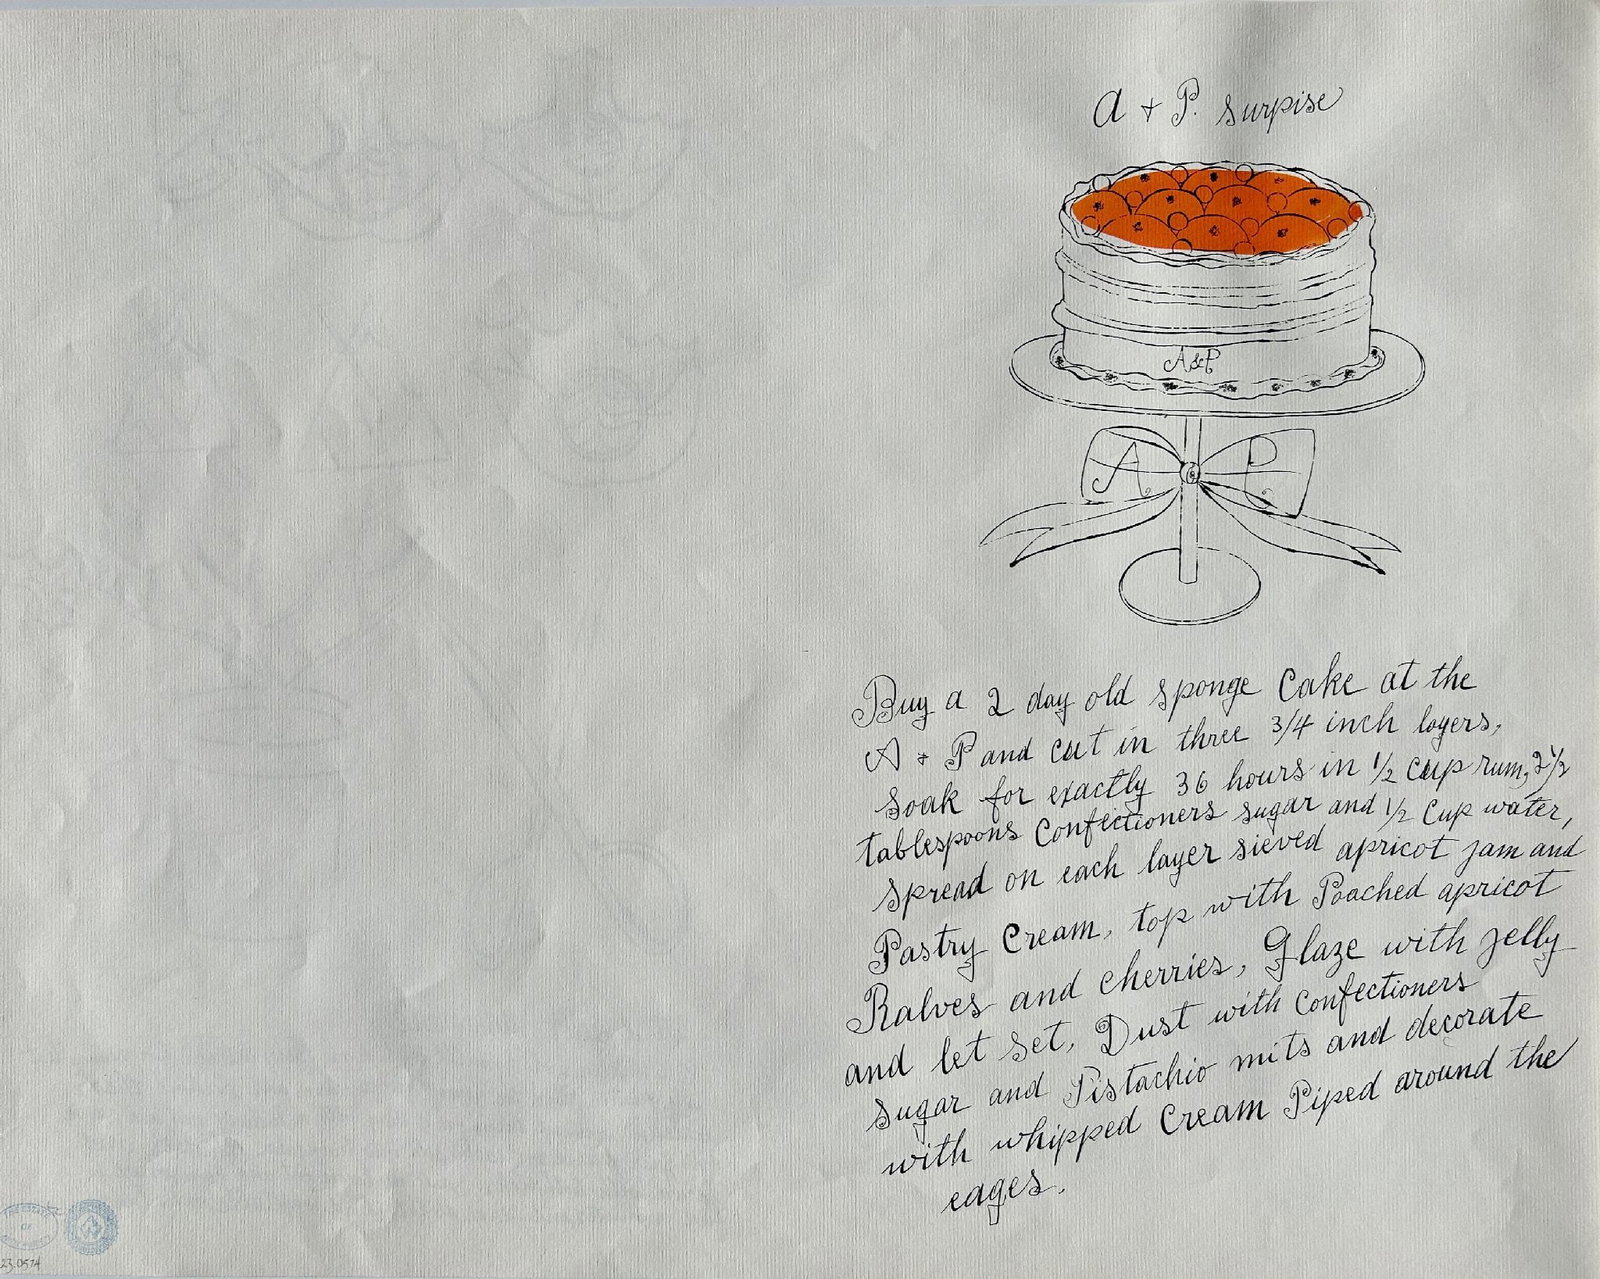 A + P. surpise
A & P
A. P.
Buy a 2 day old sponge Cake at the
A + P and cut in three 3/4 inch layers,
Soak for exactly 36 hours in 1/2 Cup rum, 2 1/2
tablespoons Confectioners sugar and 1/2 Cup water,
Spread on each layer sieved apricot jam and
Pastry Cream, top with Poached apricot
Ralves and cherries, Glaze with jelly
and let set, Dust with Confectioners
Sugar and Pistachio nuts and decorate
with whipped Cream Piped around the
eages.
23.0574